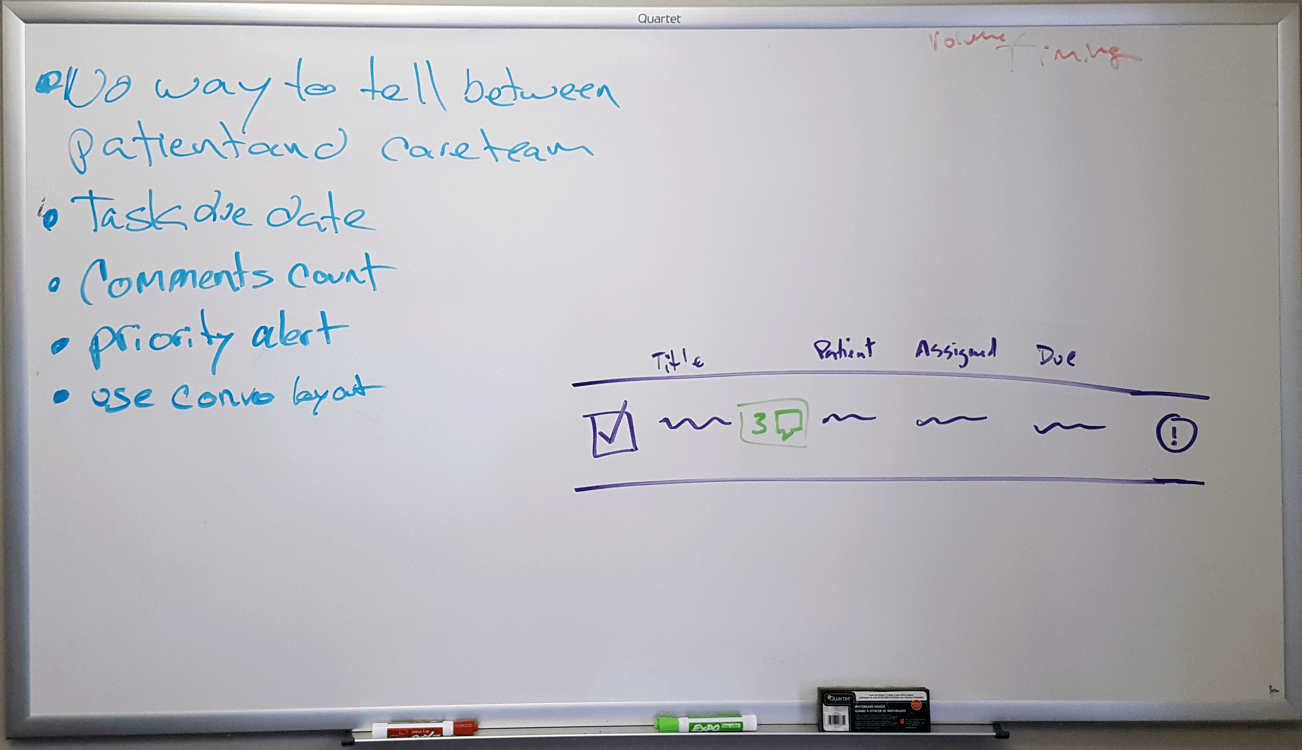 Quartet
Volume + iming
• No way to tell between
patient and care team
• Task due date
• Comments count
• priority alert
• use convo layout
Title Patient Assigned Due
3 !
Quartet
EXPO